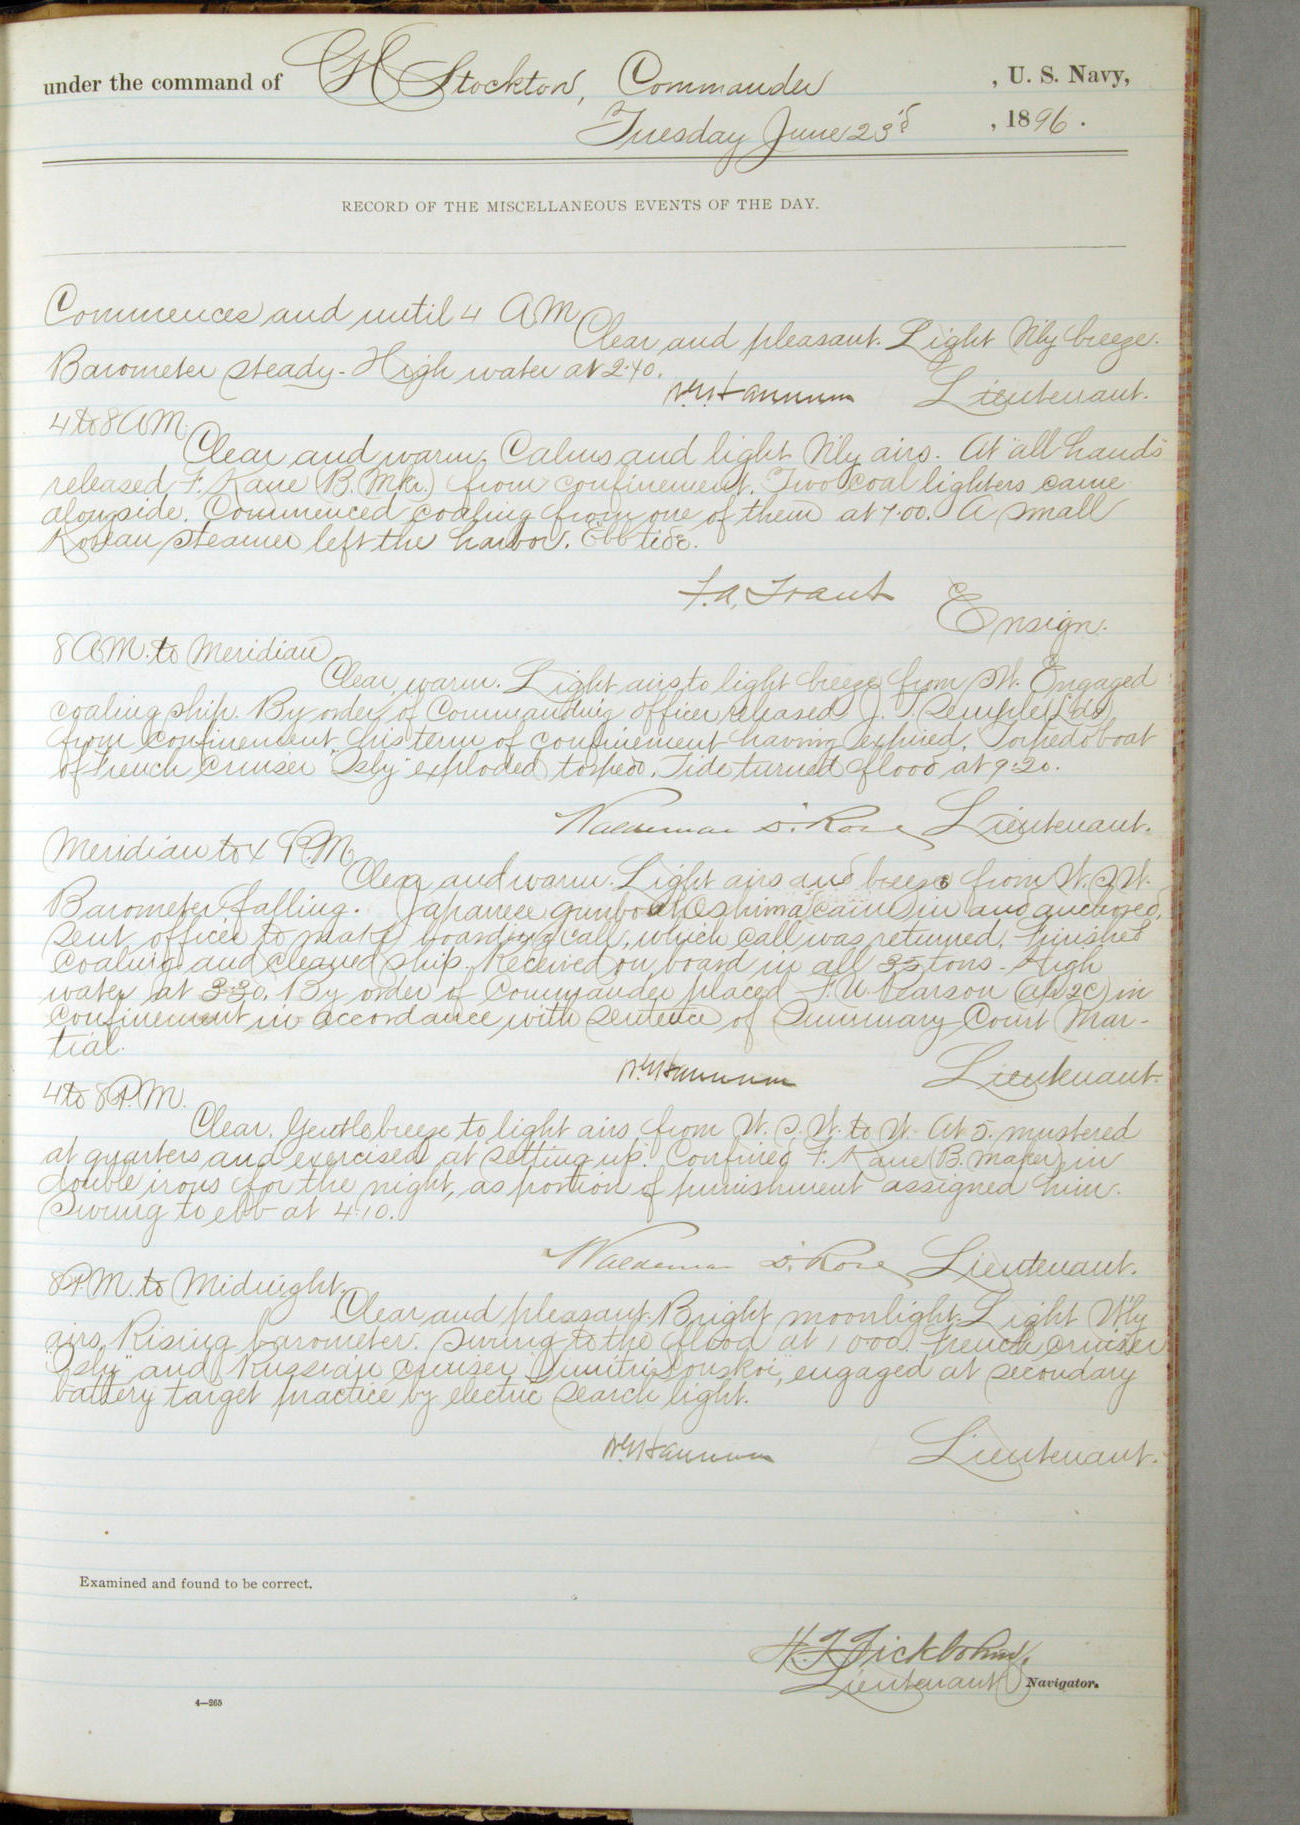 under the command of C H Stockton, Commander, U. S. Navy,
Tuesday June 23rd, 1896.
RECORD OF THE MISCELLANEOUS EVENTS OF THE DAY.
Commences and until 4 A.M.
Clear and pleasant. Light N'ly breeze.
Barometer steady. High water at 2.40.
Lieutenant.
4 to 8 A.M.
Clear and warm. Calms and light N'ly airs. At "all hands"
released F. Kane (B. Mkr.) from confinement. Two coal lighters came
alongside. Commenced coaling from one of them at 7.00. A small
Korean steamer left the harbor. Ebb tide.
F. A. Traut
Ensign.
8 A.M. to Meridian
Clear, warm. Light airs to light breeze from SW. Engaged
coaling ship. By order of Commanding officer released J. T. Semple (Lds)
from confinement, his term of confinement having expired. Torpedo boat
of French Cruiser "Isly" exploded torpedo. Tide turned flood at 9.20.
Lieutenant.
Meridian to 4 P.M.
Clear and warm. Light airs and breeze from W.S.W.
Barometer falling. Japanese gunboat "Oshima" came in and anchored.
Sent officer to make boarding call, which call was returned. Finished
coaling and cleaned ship. Received on board in all 35 tons. High
water at 3.30. By order of Commander placed Pearson in
confinement in accordance with sentence of Summary Court Mar-
tial.
Lieutenant.
4 to 8 P.M.
Clear. Gentle breeze to light airs from W.S.W. to W. At 5. mustered
at quarters and exercised at "setting up". Confined F. Kane (B. Maker) in
double irons for the night, as portion of punishment assigned him.
Swung to ebb at 4.10.
Lieutenant.
8 P.M. to Midnight.
Clear and pleasant. Bright moonlight. Light W'ly
airs. Rising barometer. Swung to the flood at 10.00. French cruiser
"Isly" and Russian cruiser "Dimitri Donskoi", engaged at secondary
battery target practice by electric search light.
Lieutenant.
Examined and found to be correct.
H. F. Fickbohm,
Lieutenant Navigator.
4—265